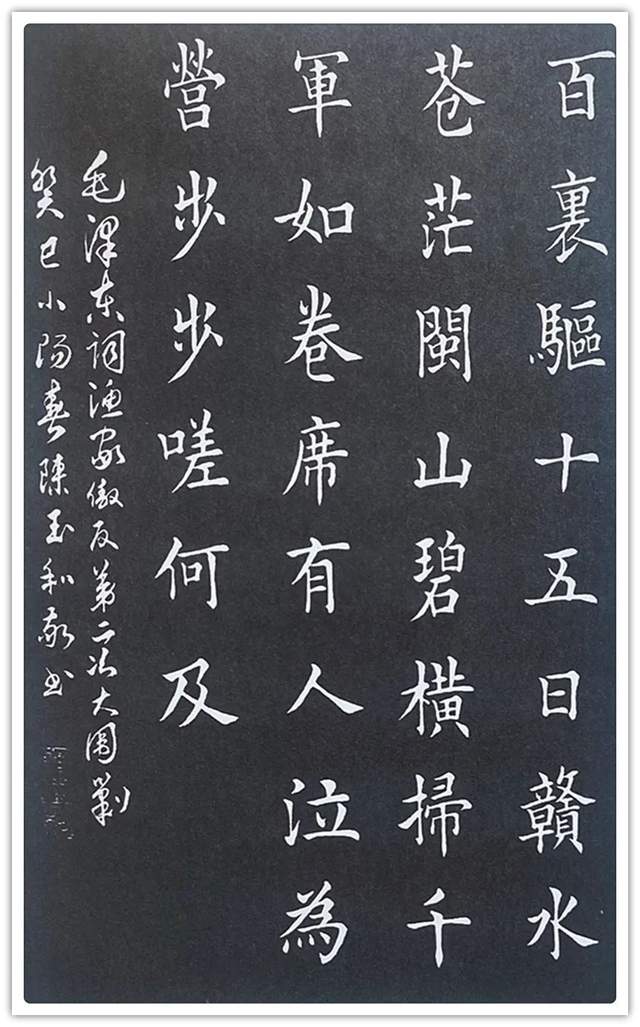 百裏驅十五日贛水
蒼茫閩山碧橫掃千
軍如卷席有人泣為
營步步嗟何及
毛澤东词渔家傲反第二次大围剿
癸巳小阳春陳玉和敬书